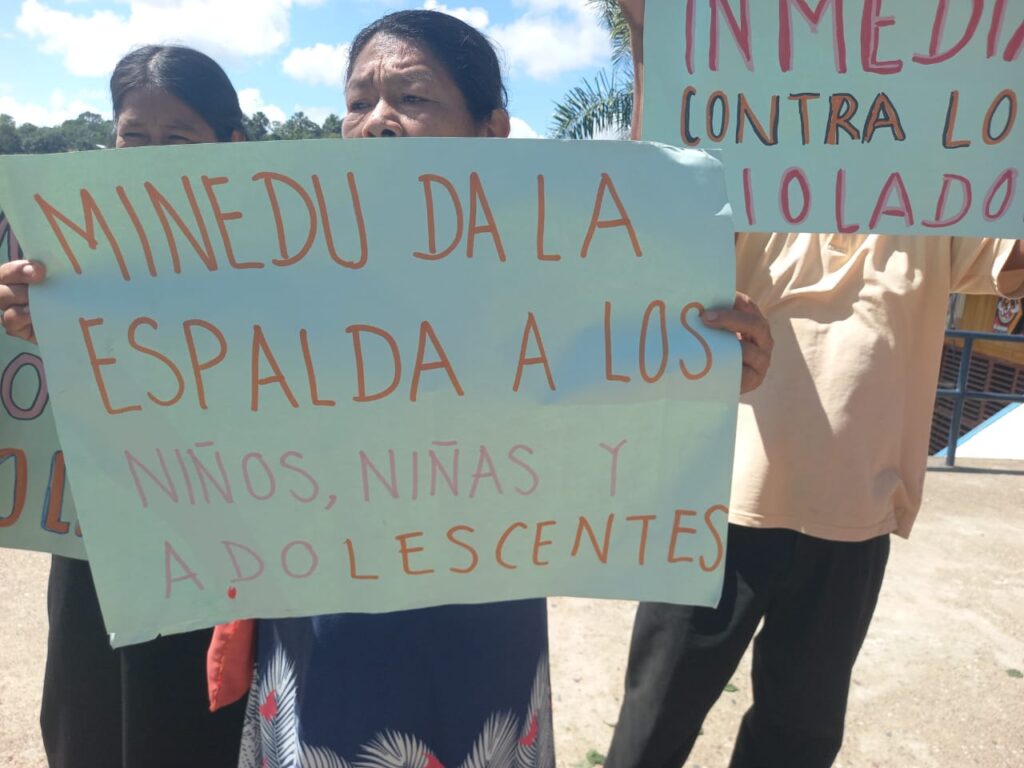 MINEDU DA LA
ESPALDA A LOS
NIÑOS, NIÑAS Y
ADOLESCENTES
INMEDIA
CONTRA LO
IOLADO